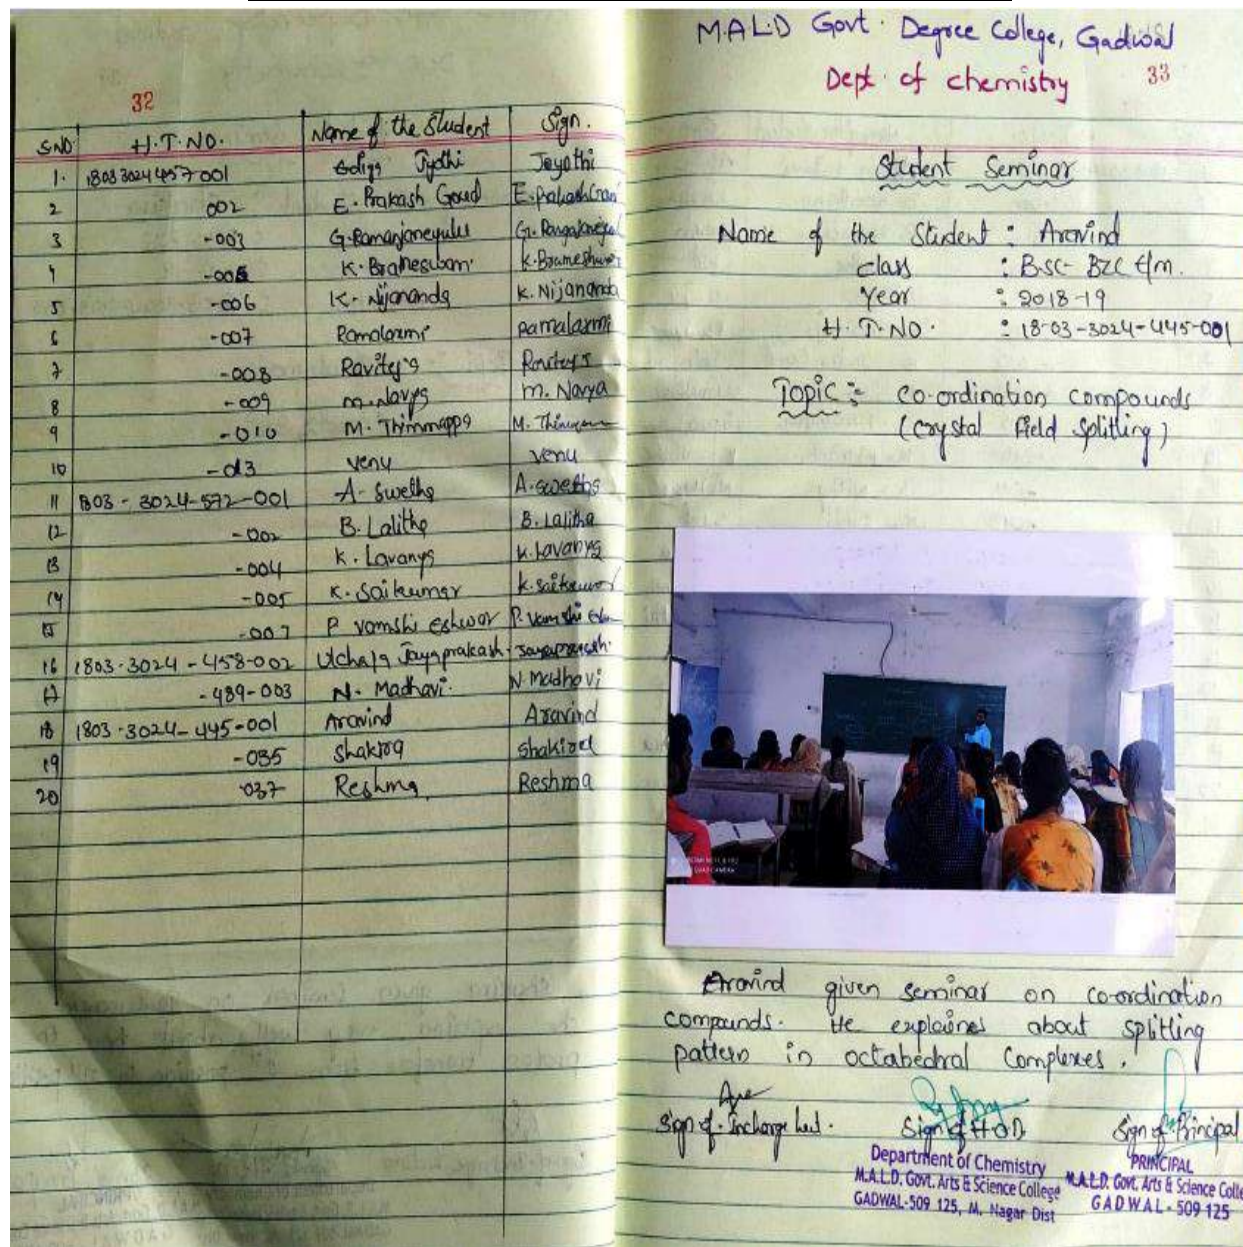 32
S.NO H.T.NO. Name of the Student Sign.
1. 18033024457001 Ediga Jyothi Jayothi
2 002 E. Prakash Goud E. Prakash Goud
3 -003 G. Ramanjaneyulu
4 -005 K. Brameswari K. Brameshwari
5 -006 K. Nijananda K. Nijananda
6 -007 Ramalaxmi Ramalaxmi
7 -008 Raviteja Raviteja
8 -009 M. Navya M. Navya
9 -010 M. Thimmappa
10 -013 Venu Venu
11 1803-3024-572-001 A. Swetha A. Swetha
12 -002 B. Lalitha B. Lalitha
13 -004 K. Lavanya K. Lavanya
14 -005 K. Saikumar K. Saikumar
15 -007 P Vamshi Eshwar P. Vamshi
16 1803-3024-458-002 Jayaprakash Jayaprakash
17 -489-003 N. Madhavi. N Madhavi
18 1803-3024-445-001 Aravind Aravind
19 -035 Shakira
20 037 Reshma Reshma
M.A.L.D Govt. Degree College, Gadwal
Dept. of chemistry 33
Student Seminar
Name of the Student : Aravind
class : B.Sc- BZC E/m.
Year : 2018-19
H.T.NO. : 18-03-3024-445-001
Topic : Co-ordination compounds
(Crystal Field Splitting)
Aravind given seminar on co-ordination
compounds. He explaines about splitting
pattern in octahedral Complexes.
Sign of Incharge Lect. Sign of H.O.D. Sign of Principal
Department of Chemistry
M.A.L.D. Govt. Arts & Science College
GADWAL-509 125, M. Nagar Dist
PRINCIPAL
M.A.L.D. Govt. Arts & Science Colle
GADWAL - 509 125